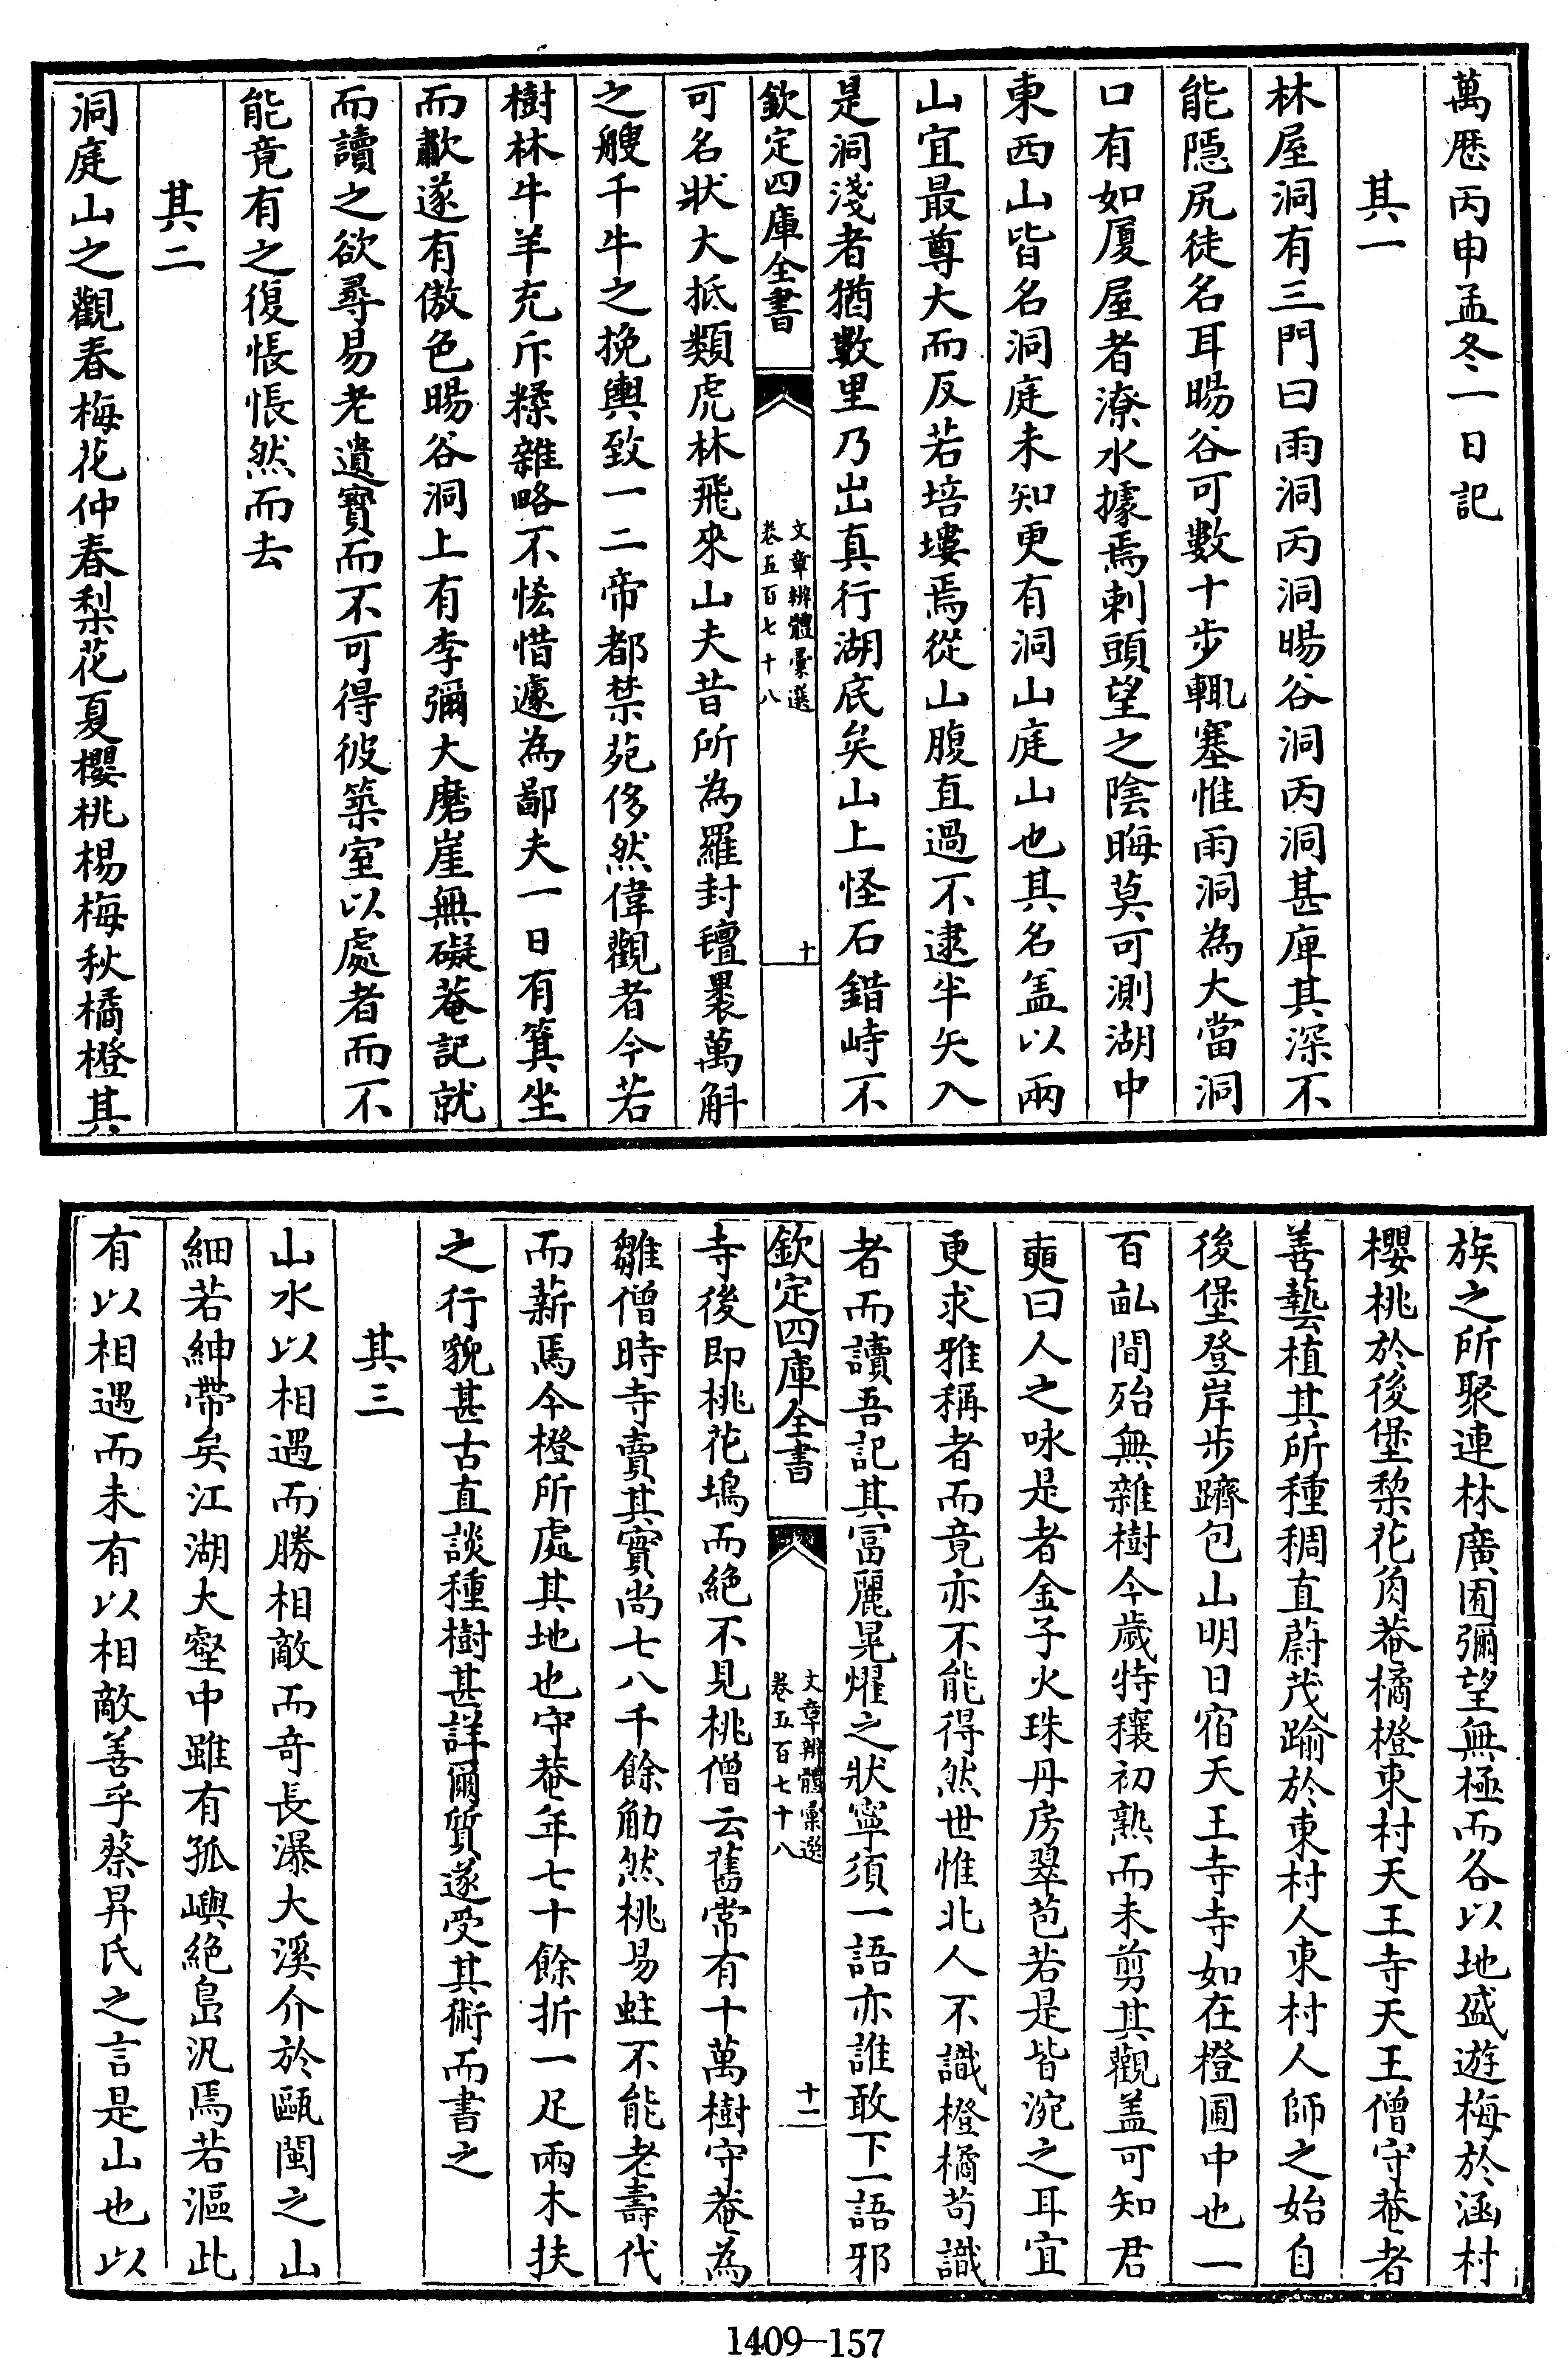 萬厯丙申孟冬一日記
其一
林屋洞有三門曰雨洞丙洞暘谷洞丙洞甚庳其深不
能隠尻徒名耳暘谷可數十步輒塞惟雨洞為大當洞
口有如厦屋者潦水據焉刺頭望之陰晦莫可測湖中
東西山皆名洞庭未知更有洞山庭山也其名盖以兩
山宜最尊大而反若培塿焉從山腹直過不逮半矢入
是洞淺者猶數里乃出真行湖底矣山上怪石錯峙不
欽定四庫全書
文章辨體彚選
卷五百七十八
十
可名狀大抵類虎林飛來山夫昔所為羅封氊裹萬斛
之艘千牛之挽輿致一二帝都禁苑侈然偉觀者今若
樹林牛羊充斥糅雜略不恡惜遽為鄙夫一日有箕坐
而歗遂有傲色暘谷洞上有李彌大磨崖無礙菴記就
而讀之欲尋易老遺寳而不可得彼築室以處者而不
能竟有之復悵悵然而去
其二
洞庭山之觀春梅花仲春梨花夏櫻桃楊梅秋橘橙其
族之所聚連林廣囿彌望無極而各以地盛遊梅於涵村
櫻桃於後堡棃花角菴橘橙東村天王寺天王僧守菴者
善藝植其所種稠直蔚茂踰於東村人東村人師之始自
後堡登岸步躋包山明日宿天王寺寺如在橙圃中也一
百畆間殆無雜樹今歲特穰初熟而未剪其觀盖可知君
奭曰人之咏是者金子火珠丹房翠苞若是皆浼之耳宜
更求雅稱者而竟亦不能得然世惟北人不識橙橘茍識
者而讀吾記其冨麗晃燿之狀寧須一語亦誰敢下一語邪
欽定四庫全書
文章辨體彚選
卷五百七十八
十一
寺後即桃花塢而絶不見桃僧云舊常有十萬樹守菴為
雛僧時寺賣其實尚七八千餘觔然桃易蛀不能老壽代
而薪焉今橙所處其地也守菴年七十餘折一足兩木扶
之行貌甚古直談種樹甚詳爾質遂受其術而書之
其三
山水以相遇而勝相敵而竒長瀑大溪介於甌閩之山
細若紳帶矣江湖大壑中雖有孤嶼絶島汎焉若漚此
有以相遇而未有以相敵善乎蔡昇氏之言是山也以
1409—157